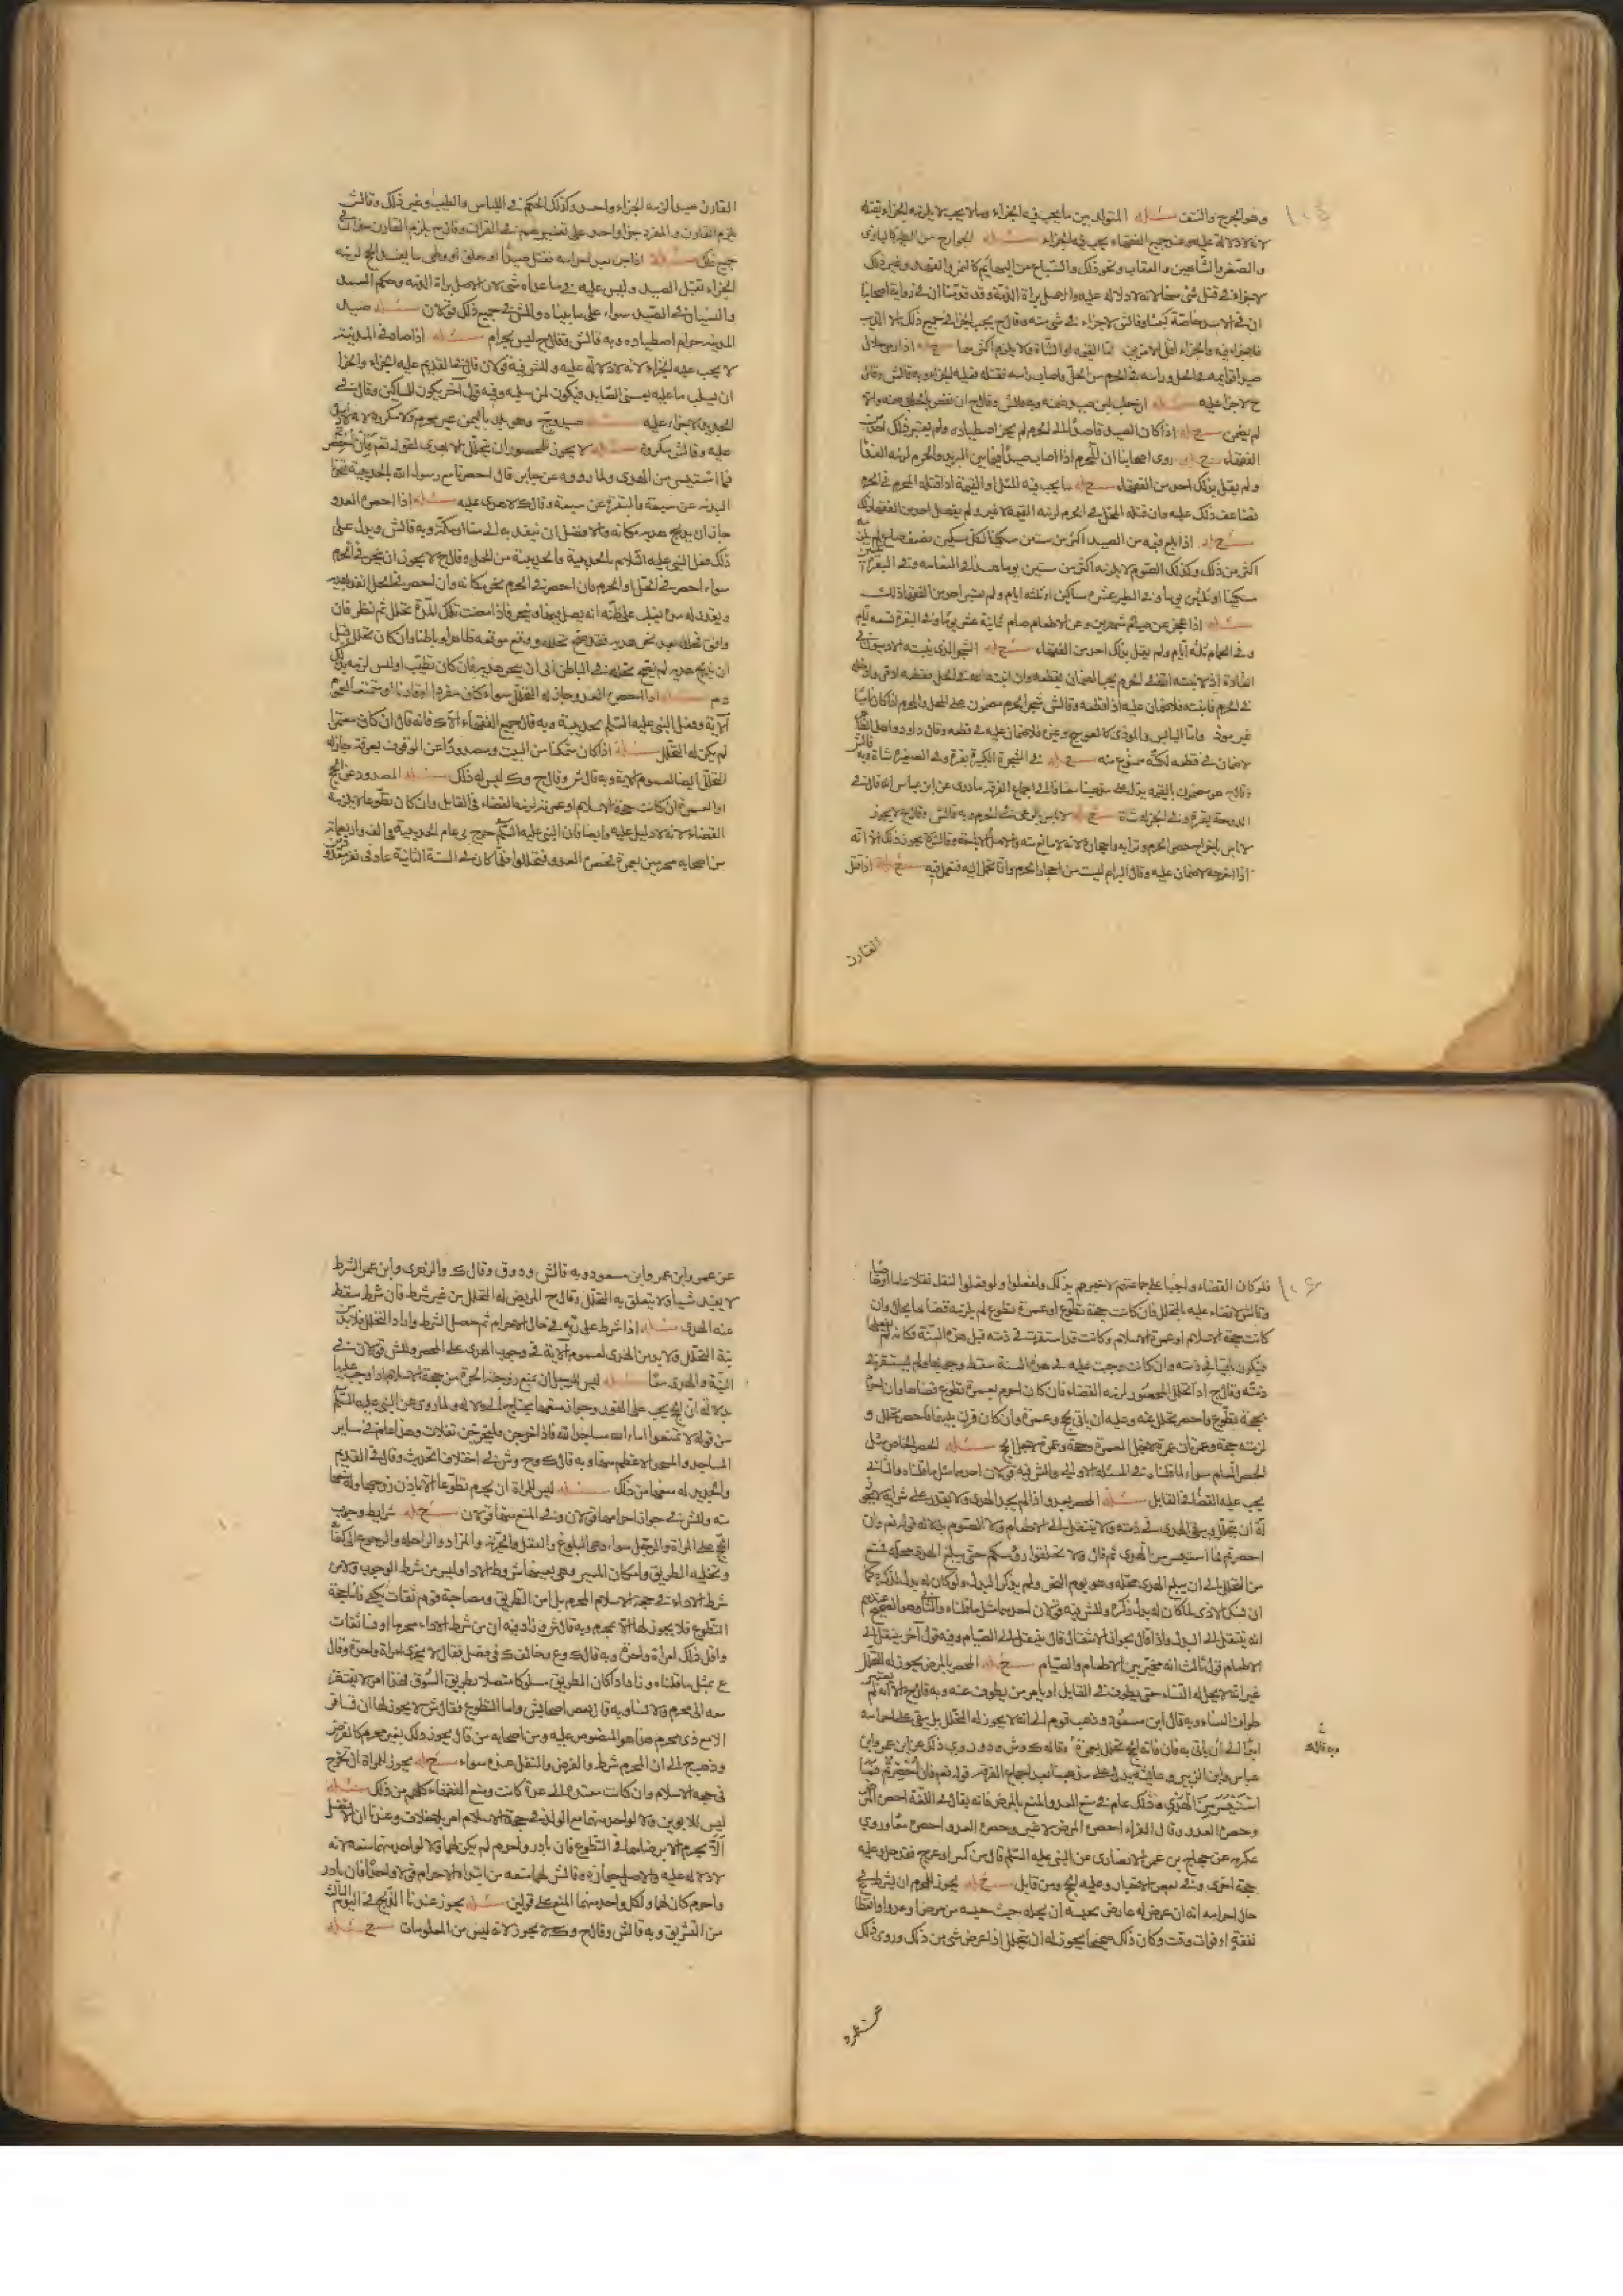 وهو الجرح والنتف مسئله المتولد بين ما يجب فيه الجزاء وما لا يجب لا يلزمه الجزاء بقتله
لانه لا دلالة عليه وعند جميع الفقهاء يجب فيه الجزاء مسئله الجوارح من الطير كالبازى
والصقر والشاهين والعقاب ونحو ذلك والسباع من البهائم كالنمر والفهد وغير ذلك
لا جزاء فى قتل شئ منها لانه لا دلالة عليه والاصل براة الذمة وقد قدمنا ان فى رواية اصحابنا
ان فى الاسد خاصة كبشا وقال ش لا جزاء فى شئ منه وقال ح يجب الجزاء فى جميع ذلك الا الذئب
اذا رمى حلال
صيدا قوايمه فى الحل وراسه فى الحرم من الحل فاصاب راسه فقتله فعليه الجزاء وبه قال ش وقال
ح لا جزا عليه
لم يضمن مسئله اذا كان الصيد قاصدا الى الحرم لم يجز اصطياده ولم يعتبر ذلك احد من
الفقهاء مسئله روى اصحابنا ان المحرم اذا اصاب صيدا فيما بين البريد والحرم لزمه الفدا
ولم يقل بذلك احد من الفقهاء مسئله ما يجب فيه المثل او القيمة اذا قتله المحرم فى الحرم
تضاعف ذلك عليه وان قتله المحل فى الحرم لزمه القيمة لا غير ولم يفصل احد من الفقهاء ذلك
مسئله اذا بلغ قيمة الصيد اكثر من ستين مسكينا لكل مسكين نصف صاع لم يلزمه
اكثر من ذلك وكذلك الصوم لا يلزمه اكثر من ستين يوما هذا فى النعامة وفى البقرة
مسكينا او ثلثين يوما وفى الطير عشرة مساكين او ثلثة ايام ولم يعتبر احد من الفقهاء ذلك
مسئله اذا عجز عن صيام شهرين وعن الاطعام صام ثمانية عشر يوما وفى البقرة تسعة ايام
وفى الحمام ثلثة ايام ولم يقل بذلك احد من الفقهاء مسئله الشجر الذى ينبته الادميون فى
العادة اذا نبته الله فى الحرم يجب الضمان بقطعه وان انبته الله فى الحل فقطعه ادمى وادخله
فى الحرم فانبته فلا ضمان عليه اذا قطعه وقال ش شجر الحرم مضمون على المحل والمحرم اذا كان ناميا
غير موذ واما اليابس والموذى كالعوسج وغيره فلا ضمان عليه فى قطعه وقال داود واهل الظاهر
لا ضمان فى قطعه لكنه ممنوع منه مسئله فى الشجرة الكبيرة بقرة وفى الصغيرة شاة وبه قال ش
وقال ح هو مضمون بالقيمة يدل على مذهبنا مضافا الى اجماع الفرقة ما روى عن ابن عباس انه قال فى
الدوحة بقرة وفى الجزلة شاة مسئله لا باس بالرعى فى الحرم وبه قال ش وقال ح لا يجوز
اذا اخرجه لا ضمان عليه وقال البرام ليست من احجار الحرم وانما تحمل اليه فتعمل فيه مسئله اذا قتل
القارن
القارن صيدا لزمه الجزاء واحد وكذلك الحكم فى اللباس والطيب وغير ذلك وقال ش
يلزم القارن والمفرد جزا واحد على تفسيرهم فى القران وقال ح يلزم القارن جزاان فى
جميع ذلك مسئله اذا افسد احرامه فقتل صيدا او حلق او وطى ما يفسد الحج لزمه
الجزاء بقتل الصيد وليس عليه فى ما عداه شئ لان الاصل براة الذمة وحكم العمد
والنسيان فى الصيد سواء على ما بيناه وللش فى جميع ذلك قولان مسئله صيد
المدينة حرام اصطياده وبه قال ش وقال ح ليس بحرام مسئله اذا صاد فى المدينة
لا يجب عليه الجزاء لانه لا دلالة عليه وللش فيه قولان قال فى القديم عليه الجزاء والجزا
ان يسلب ما عليه يعنى الصايد فيكون لمن سلبه وفيه قول اخر يكون للمساكين وقال فى
الجديد لا جزاء عليه مسئله صيد وج وهى بلد باليمن غير محرم ولا مكروه لانه لا دليل
عليه وقال ش مكروه مسئله لا يجوز للمحصور ان يتحلل الا بهدى لقوله تعم فان احصرتم
فما استيسر من الهدى ولما رووه عن جابر قال احصرنا مع رسول الله بالحديبية فنحرنا
البدنة عن سبعة والبقرة عن سبعة وقال ك لا هدى عليه مسئله اذا احصره العدو
جاز ان يذبح هديه مكانه والافضل ان ينفذ به الى منا او مكة وبه قال ش ويدل على
ذلك فعل النبى عليه السلام بالحديبية والحديبية من الحل وقال ح لا يجوز ان ينحر الا فى الحرم
سواء احصر فى الحل او الحرم فان احصر فى الحرم نحر مكانه وان احصر فى الحل انفذ هديه
ويقدر له مدة يغلب على ظنه انه يصل فيها وينحر فاذا مضت تلك المدة تحلل ثم نظر فان
وافق تحلله بعد نحر هديه فقد صح تحلله ووقع موقعه ظاهرا وباطنا وان كان تحلل قبل
ان يذبح هديه لم يصح تحلله فى الباطن الى ان ينحر هديه فان كان تطيب او لبس لزمه بذلك
دم مسئله اذا احصره العدو جاز له التحلل سواء كان مفردا او قارنا او متمتعا لعموم
الاية وفعل النبى عليه السلم بحديبية وبه قال جميع الفقهاء الا ك فانه قال ان كان معتمرا
لم يكن له التحلل مسئله اذا كان متمكنا من البيت ومصدودا عن الوقوف بعرفة جاز له
التحلل ايضا لعموم الاية وبه قال ش وقال ح وك ليس له ذلك مسئله المصدود عن الحج
او العمرة ان كانت حجة الاسلام او عمرته لزمه القضاء فى القابل وان كان تطوعا لا يلزمه
القضاء لانه لا دليل عليه وايضا فان النبى عليه السلم خرج فى عام الحديبية فى الف واربعمائة
من اصحابه محرمين بعمرة فحصره العدو فتحللوا فلما كان فى السنة الثانية عاد فى نفر
فلو كان القضاء واجبا على جماعتهم لاخبرهم بذلك ولفعلوا ولو فعلوا لنقل نقلا عاما
وقال ش لا قضاء عليه بالتحلل فان كانت حجة تطوع او عمرة تطوع لم يلزمه قضاها بحال وان
كانت حجة الاسلام او عمرة الاسلام وكانت قد استقرت فى ذمته قبل هذه السنة فكانه لم يفعلها
فيكون باقيا فى ذمته وان كانت وجبت عليه فى هذه السنة سقط وجوبها ولم يستقر فى
ذمته وقال ح اذا تحلل المحصور لزمه القضاء فان كان احرم بعمرة تطوع قضاها وان احرم
بحجة تطوع واحصر تحلل منه وعليه ان ياتى بحج وعمرة وان كان قرن بينهما فاحصر تحلل و
لزمته حجة وعمرتان عمرة لاجل العمرة وحجة وعمرة لاجل الحج مسئله الحصر الخاص مثل
الحصر العام سواء لما قلناه فى المسئلة الاولى وللش فيه قولان احدهما مثل ما قلناه والثانى
يجب عليه القضا فى القابل مسئله المحصر بعدو اذا لم يجد الهدى ولا يقدر على شرايه لا يجوز
له ان يتحلل ويبقى الهدى فى ذمته ولا ينتقل الى الاطعام ولا الصوم بدلالة قوله تعم فان
احصرتم فما استيسر من الهدى ثم قال ولا تحلقوا رؤسكم حتى يبلغ الهدى محله فمنع
من التحلل الى ان يبلغ الهدى محله وهو يوم النحر ولم يذكر البدل ولو كان له بدل لذكره كما
ان نسك الاذى لما كان له بدل ذكره وللش فيه قولان احدهما مثل ما قلناه والثانى وهو الصحيح عندهم
انه ينتقل الى البدل واذا قال بجواز الانتقال قال ينتقل الى الصيام وفيه قول اخر ينتقل الى
الاطعام قول ثالث انه مخير بين الاطعام والصيام مسئله المحصر بالمرض يجوز له التحلل
غير انه لا يحل له النساء حتى يطوف فى القابل او يامر من يطوف عنه وبه قال ح الا انه لم يعتبر
طواف النساء وبه قال ابن مسعود وذهب قوم الى انه لا يجوز له التحلل بل يبقى على احرامه
ابدا الى ان ياتى به فان فاته الحج تحلل بعمرة وقاله ك وش ود وروى ذلك عن ابن عمر وابن
وبه قال ك
عباس وابن الزبير وعايشة يدل على مذهبنا بعد اجماع الفرقة قوله تعم فان احصرتم فما
استيسر من الهدى وذلك عام فى منع العدو والمنع بالمرض فانه يقال فى اللغة احصره المرض
وحصره العدو وقال الفراء احصره المرض لا غير وحصره العدو واحصره معا وروى
عكرمة عن حجاج بن عمر الانصارى عن النبى عليه السلم قال من كسر او عرج فقد حل وعليه
حجة اخرى وفى بعض الاخبار وعليه الحج ومن قابل مسئله يجوز للمحرم ان يشترط فى
حال احرامه انه ان عرض له عارض يحبسه ان يحله حيث حبسه من مرض او عدو او انقطاع
نفقة او فوات وقت وكان ذلك صحيحا يجوز له ان يتحلل اذا عرض شئ من ذلك وروى ذلك
عن عمر
عن عمر وابن عمر وابن مسعود وبه قال ش ود وق وقال ك والزهرى وابن عمر الشرط
لا يفيد شيئا ولا يتعلق به التحلل وقال ح المريض له التحلل من غير شرط فان شرط سقط
عنه الهدى مسئله اذا شرط على ربه فى حال الاحرام ثم حصل الشرط واراد التحلل فلا بد من
نية التحلل ولا بد من الهدى لعموم الاية فى وجوب الهدى على المحصر وللش قولان فى
النية والهدى معا مسئله ليس للرجل ان يمنع زوجته الحرة من حجة الاسلام اذا وجب عليها
بدلالة ان الحج يجب على الفور وجواز منعها يحتاج الى دلالة ولما روى عن النبى عليه السلم
من قوله لا تمنعوا اماء الله مساجد الله فاذا خرجن فليخرجن تفلات وهذا عام فى ساير
المساجد والمسجد الاعظم منها وبه قال ك وح وش فى اختلاف الحديث وقال فى القديم
والجديد له منعها من ذلك مسئله ليس للمراة ان تحرم تطوعا الا باذن زوجها وله منعها
منه وللش فى جواز احرامها قولان وفى المنع منها قولان مسئله شرايط وجوب
الحج على المراة والرجل سواء وهى البلوغ والعقل والحرية والزاد والراحلة والرجوع الى كفاية
وتخلية الطريق وامكان المسير وهى بعينها شروط الاداء وليس من شرط الوجوب ولا من
شرط الاداء فى حجة الاسلام المحرم بل امن الطريق ومصاحبة قوم ثقات يكفى فاما حجة
التطوع فلا يجوز لها الا بمحرم وبه قال ش وزاد فيه ان من شرط الاداء محرما او نسا ثقات
واقل ذلك امراة واحدة وبه قال ك وع وخالف ك فى فصل فقال لا يجزى امراة واحدة وقال
ع بمثل ما قلناه وزاد اذا كان الطريق مسلوكا متصلا بطريق السوق فهذا امن لا يفتقر
معه الى محرم ولا نساء وبه قال بعض اصحاب ش واما التطوع فقال ش لا يجوز لها ان تسافر
الا مع ذى محرم هذا هو المنصوص عليه ومن اصحابه من قال يجوز ذلك بغير محرم كالفرض
وذهب ح الى ان المحرم شرط والفرض والنفل عنده سواء مسئله يجوز للمراة ان تخرج
فى حجة الاسلام وان كانت معتدة اى عدة كانت ومنع الفقهاء كلهم من ذلك مسئله
ليس للابوين ولا لواحد منهما منع الولد فى حجة الاسلام امر بلا خلاف وعندنا ان الافضل
الا يحرم الا برضاهما فى التطوع فان بادر واحرم لم يكن لهما ولا لواحد منهما منعه لانه
لا دلالة عليه والاصل جوازه وقال ش لهما منعه من ابتداء الاحرام قولا واحدا فان بادر
واحرم كان لهما ولكل واحد منهما المنع على قولين مسئله يجوز عندنا الذبح فى اليوم الثالث
من التشريق وبه قال ش وقال ح وك لا يجوز لانه ليس من المعلومات مسئله